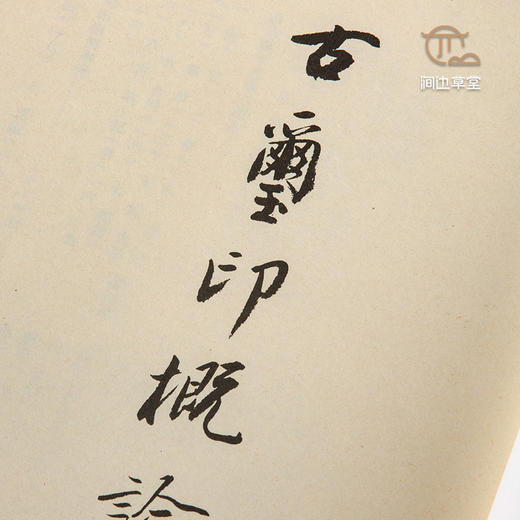 古璽印概論
涧边草堂